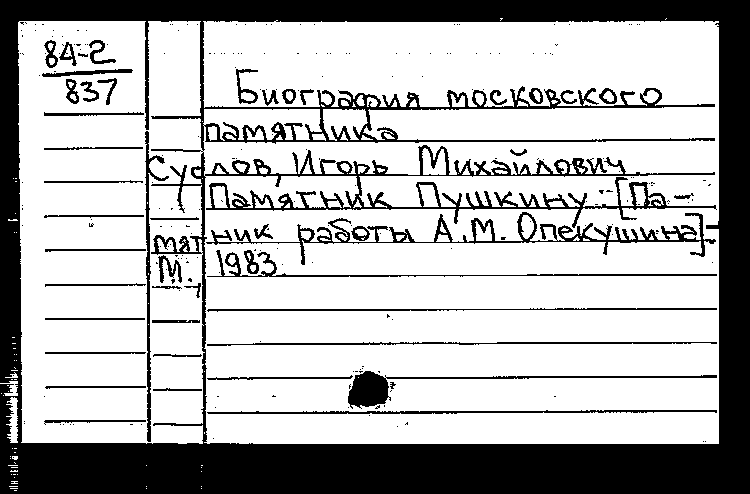 84-2
837
Биография московского
памятника
Суслов, Игорь Михайлович.
Памятник Пушкину : [Па-
мятник работы А.М. Опекушина]-
М., 1983.